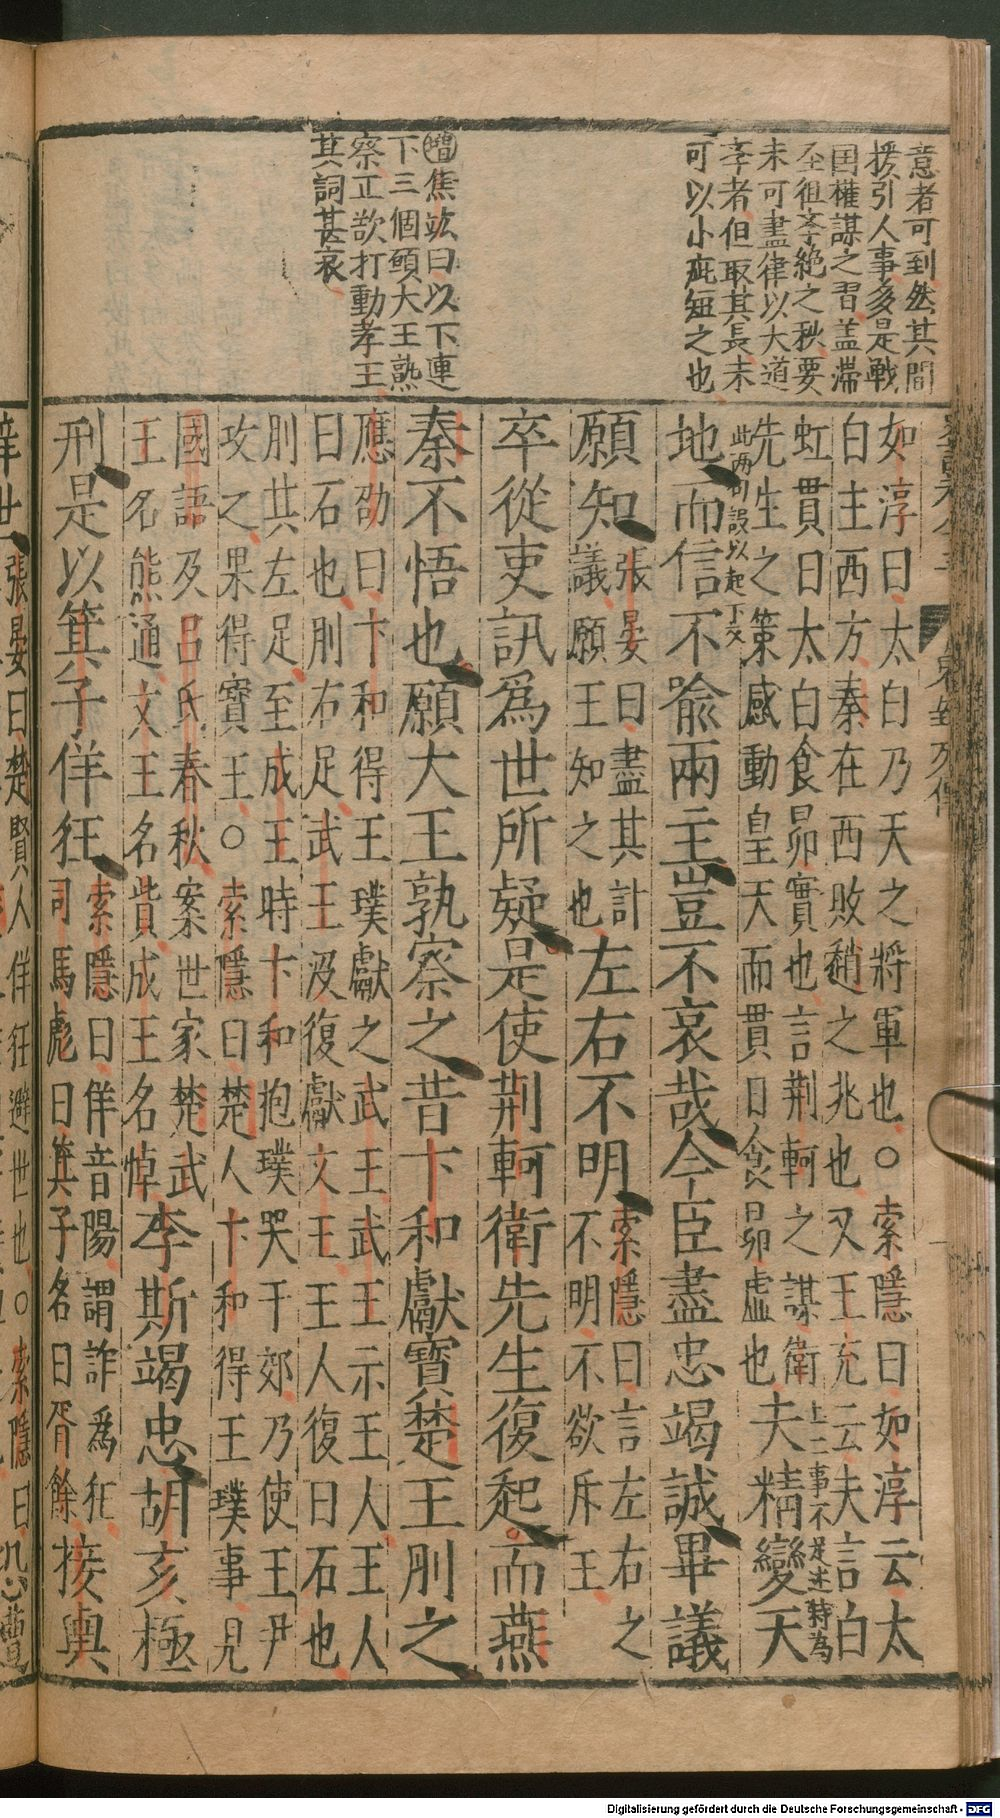 意者可到然其間
援引人事多是戰
国權謀之習蓋滞
至徂李絶之秋要
未可盡律以大道
李者但取其長未
可以小疵短之也
增焦竑曰以下連
下三個願大王熟
察正欲打動孝王
其詞甚哀
如淳曰太白乃天之將軍也○索隱曰如淳云太
白主西方秦在西敗趙之兆也又王充云夫言白
虹貫日太白食昴實也言荆軻之謀衛
先生之策感動皇天而貫日食昴虚也
上二事不足述特為
此两句設以起下文
夫精變天
地而信不喻兩主豈不哀哉今臣盡忠竭誠畢議
願知
張晏曰盡其計
議願王知之也
左右不明
索隱曰言左右之
不明不欲斥王
卒從吏訊爲世所疑是使荆軻衛先生復起而燕
秦不悟也願大王孰察之昔卞和獻寳楚王刖之
應劭曰卞和得王璞獻之武王武王示王人王人
曰石也刖右足武王没復獻文王王人復曰石也
刖其左足至成王時卞和抱璞哭于郊乃使王尹
攻之果得寳王○索隱曰楚人卞和得王璞事見
國語及吕氏春秋案世家楚武
王名熊通文王名貲成王名悼
李斯竭忠胡亥極
刑是以箕子佯狂
索隱曰佯音陽謂詐爲狂
司馬彪曰箕子名曰胥餘
接輿
辟世
張晏曰楚賢人佯狂避世也○索隱曰